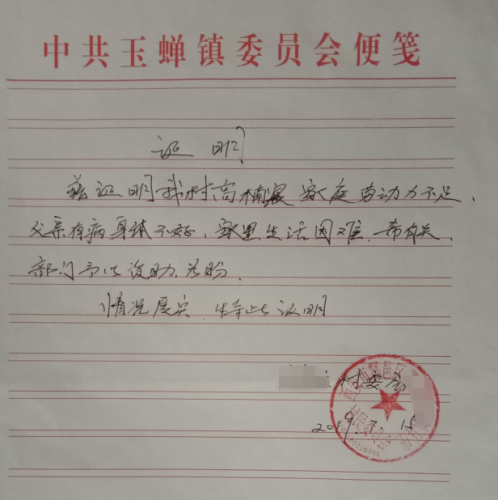 中共玉蝉镇委员会便笺
证明
兹证明我村高楠宸 家庭劳动力不足,
父亲有病身体不好,家里生活困难,希有关
部门予以资助为盼。
情况属实,特此证明
村委会
2019.7.15